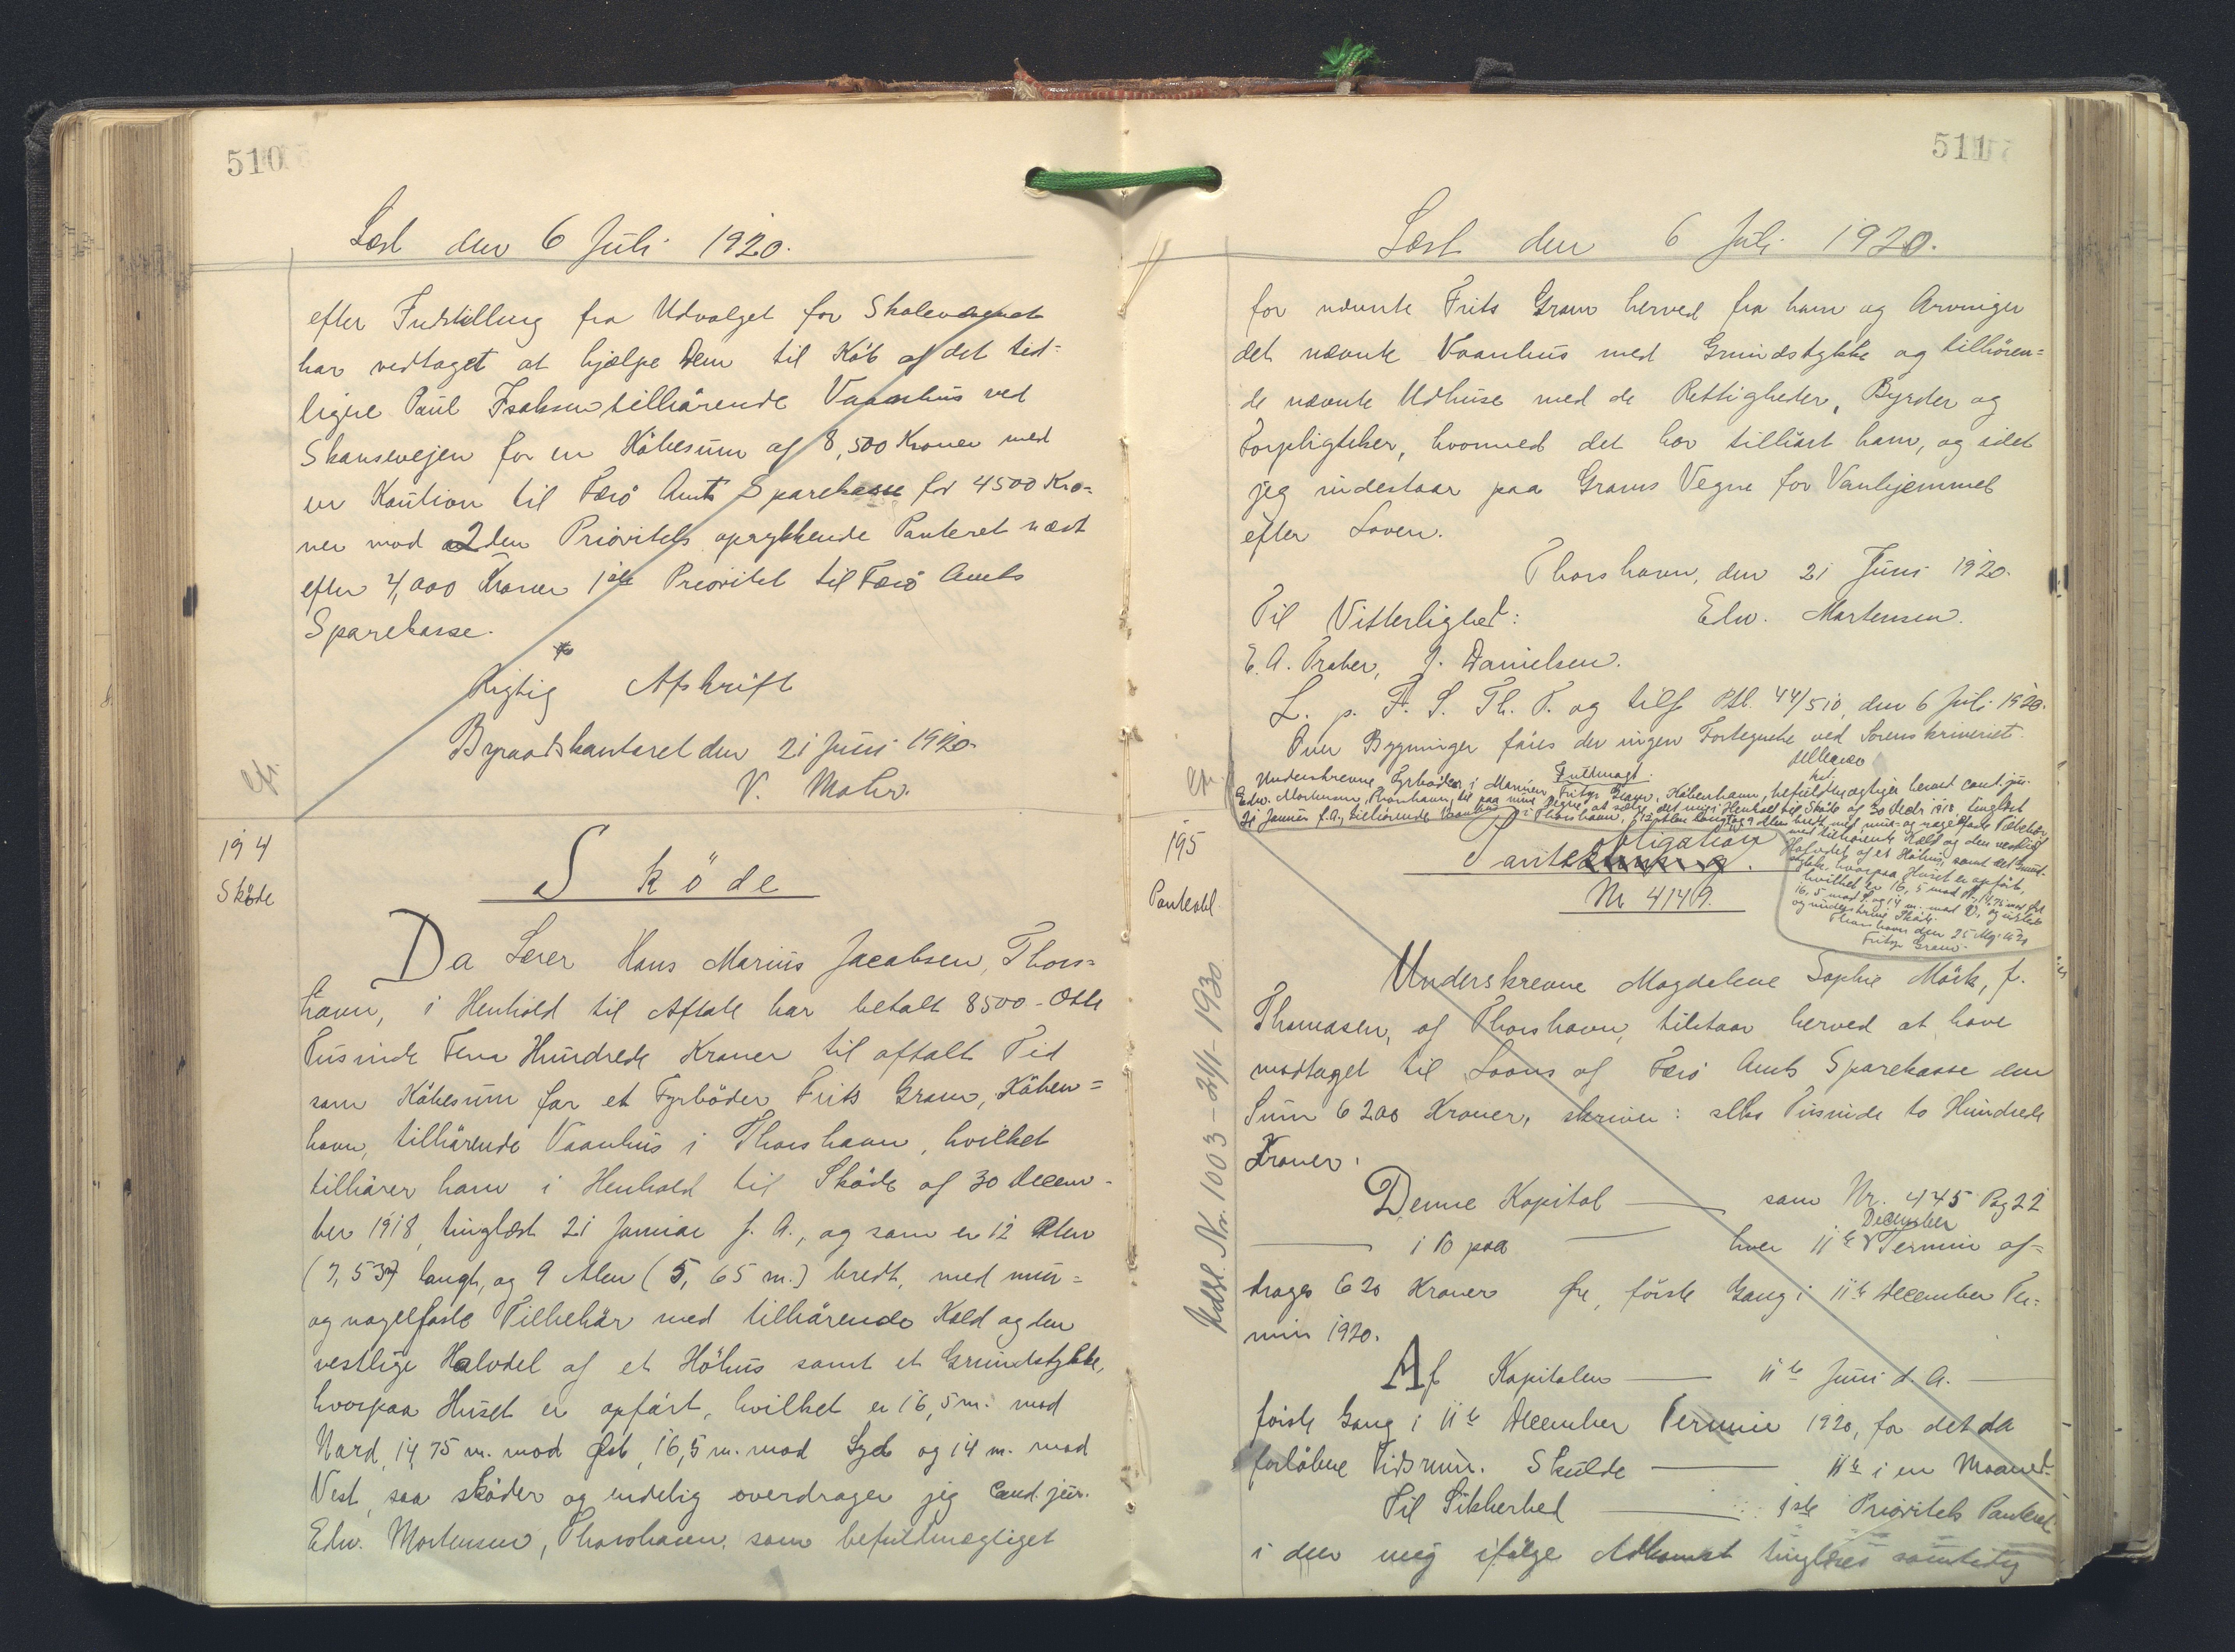 510
Læst den 6 Juli 1920.
efter Indstilling fra Udvalget for Skolevæsenet
har vedtaget at hjælpe Dem til Køb af det tid=
ligere Paul Isaksen tilhörende Vaanhus ved
Skansevejen for en Köbesum af 8,500 Kroner med
en Kaution til Færö Amts Sparekasse for 4500 Kro=
ner mod 2den Prioritets oprykkende Panteret næst
efter 4,000 Kroner 1ste Prioritet til Færö Amts
Sparekasse.
Rigtig Afskrift
Byraadskontoret den 21 Juni 1920.
V. Mohr.
194
Sköde
Sköde
Da Lærer Hans Marius Jacobsen, Thors=
havn, i Henhold til Aftale har betalt 8500 - Otte
Tusinde Fem Hundrede Kroner til aftalt Tid
som Köbesum for et Fyrböder Frits Gram, Köben=
havn, tilhörende Vaanhus i Thorshavn, hvilket
tilhörer ham i Henhold til Sköde af 30 Decem-
ber 1918, tinglæst 21 Januar f. A., og som er 12 Alen
(7,537 langt, og 9 Alen (5,65 m.) bredt, med mur=
og nagelfaste Tilbehör med tilhörende Kæld og den
vestlige Halvdel af et Höhus samt et Grundstykke,
hvorpaa Huset er opfört, hvilket er 16,5 m. mod
Nord, 14,75 m. mod Øst, 16,5 m. mod Syd og 14 m. mod
Vest, saa sköder og endelig overdrager jeg Cand. jur.
Edw. Mortensen, Thorshavn, som befuldmægtiget
511
Læst den 6 Juli 1920.
for nævnte Frits Gram herved fra ham og Arvinger
det nævnte Vaanhus med Grundstykke og tilhören=
de nævnte Udhuse med de Rettigheder, Byrder og
Forpligtelser, hvormed det har tilhört ham, og idet
jeg indestaar paa Grams Vegne for Vanhjemmel
efter Loven.
Thorshavn, den 21 Juni 1920.
Til Vitterlighed: Edw. Mortensen.
E. A. Draber, J. Danielsen.
L. p. F. S. Th. T. og tilf Ptl. 44/510, den 6 Juli 1920.
Over Bygninger föres der ingen Fortegnelse ved Sorenskriveriet.
Fuldmagt:
Underskrevne Fyrböder i Marinen, Fritz Gram, Köbenhavn, befuldmægtiger herved cand. jur.
Edw. Mortensen, Thorshavn, til paa mine Vegne at sælge det mig i Henhold til Sköde af 30 Decbr 1918, tinglæst
21 Januar f. A., tilhörende Vaanhus i Thorshavn, (12 Alen langt og 9 Alen bredt med mur- og nagelfaste Tilbehör,
med tilhörende Kæld og den vestlige
Halvdel af et Höhus, samt det Grund-
stykke, hvorpaa Huset er opfört,
hvilket er 16,5 mod N, 14,75 mod Øst
16,5 mod S. og 14 m. mod V, og udstede
og underskrive Sköde.
Thorshavn den 25 Maj 1920
Fritz Gram.
195
Panteobl.
Panteobligation
Nr 4149.
Underskrevne Magdalene Sophie Mörk, f.
Thomasen, af Thorshavn, tilstaar herved at have
modtaget til Laans af Færö Amts Sparekasse den
Sum 6200 Kroner, skriver: seks Tusinde to Hundrede
Kroner.
Denne Kapital — som Nr. 445 Pag 22
— i 10 paa — hver 11te December Termin af=
drages 620 Kroner Øre, förste Gang i 11te December Ter=
min 1920.
Af Kapitalen — 11te Juni d. A. —
förste Gang i 11te December Termin 1920, for det da
forløbne Tidsrum. Skulde — 11te i en Maaned
Til Sikkerhed — 1ste Prioritets Panteret
i den mig ifölge Adkomst tinglæst samtidig
Udsl. Nr. 1003 - 24/1 - 1930